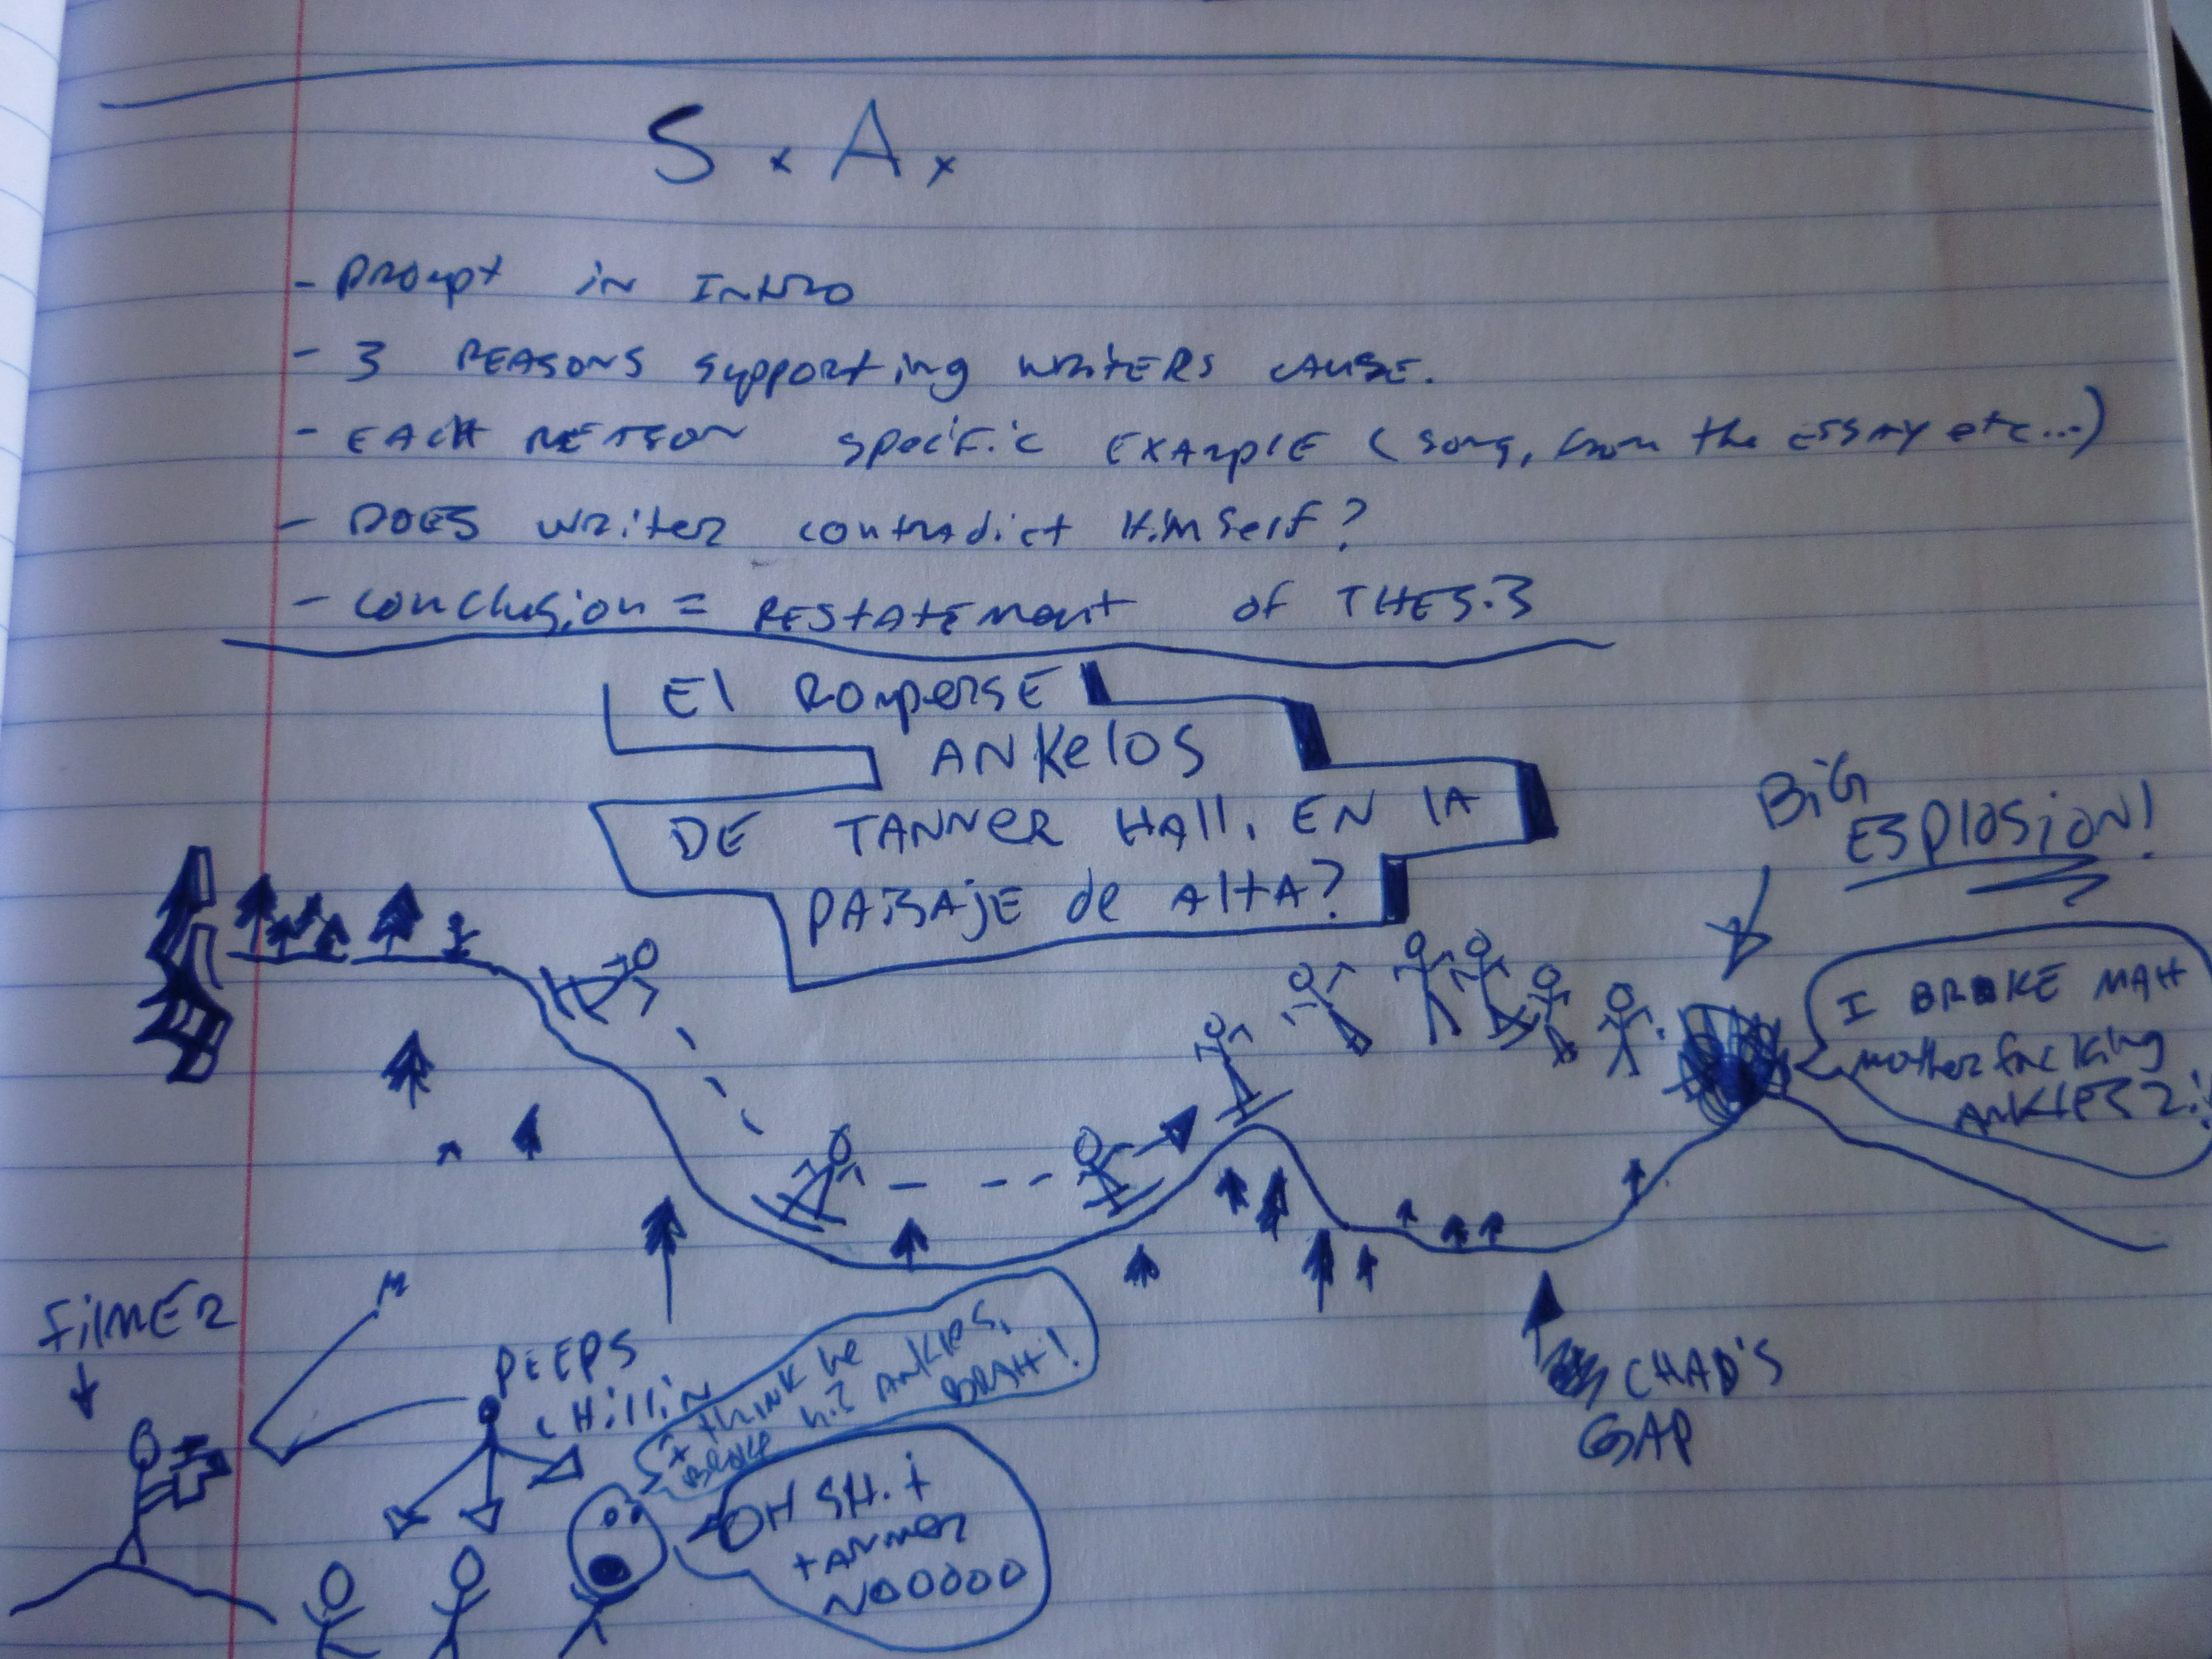 S x A x
- Prompt in Intro
- 3 REASONS supporting writers cause.
- EACH REASON specific EXAMPLE (song, from the ESSAY etc...)
- DOES writer contradict Himself?
- conclusion = RESTATEMENT of THESIS
El Romperse
ANKelos
DE TANNER HAll, EN lA
PAISAJE de AltA?
BiG
ESPlOSiON!
I BROKE MAH
motherfucking
ANKlES 2!
FilMER
PEEPS
CHillin
I think he
broke his ANKles,
BRAH!
OH SHit
tANNER
NOOOOO
CHAD'S
GAP